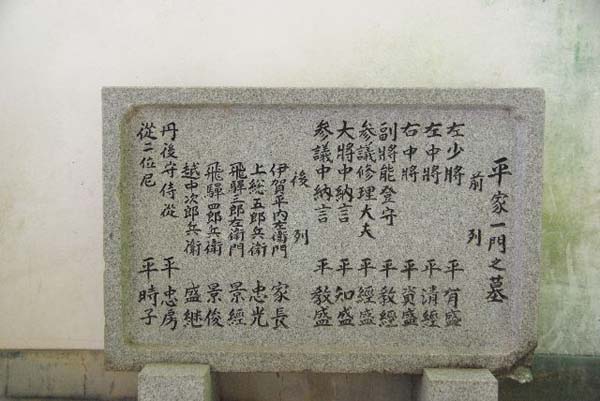 平家一門之墓
前列
左少將 平有盛
左中將 平清經
右中將 平資盛
副將能登守 平敎經
参議修理大夫 平經盛
大將中納言 平知盛
参議中納言 平敎盛
後列
伊賀平内左衛門 家長
上総五郎兵衛 忠光
飛騨三郎左衛門 景經
飛騨四郎兵衛 景俊
越中次郎兵衛 盛継
丹後守侍從 平忠房
從二位尼 平時子